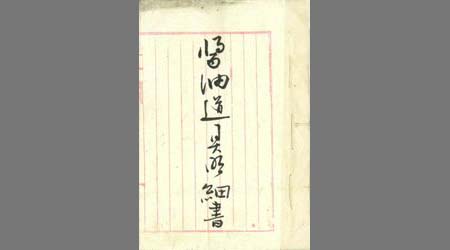 醤油道具明細書